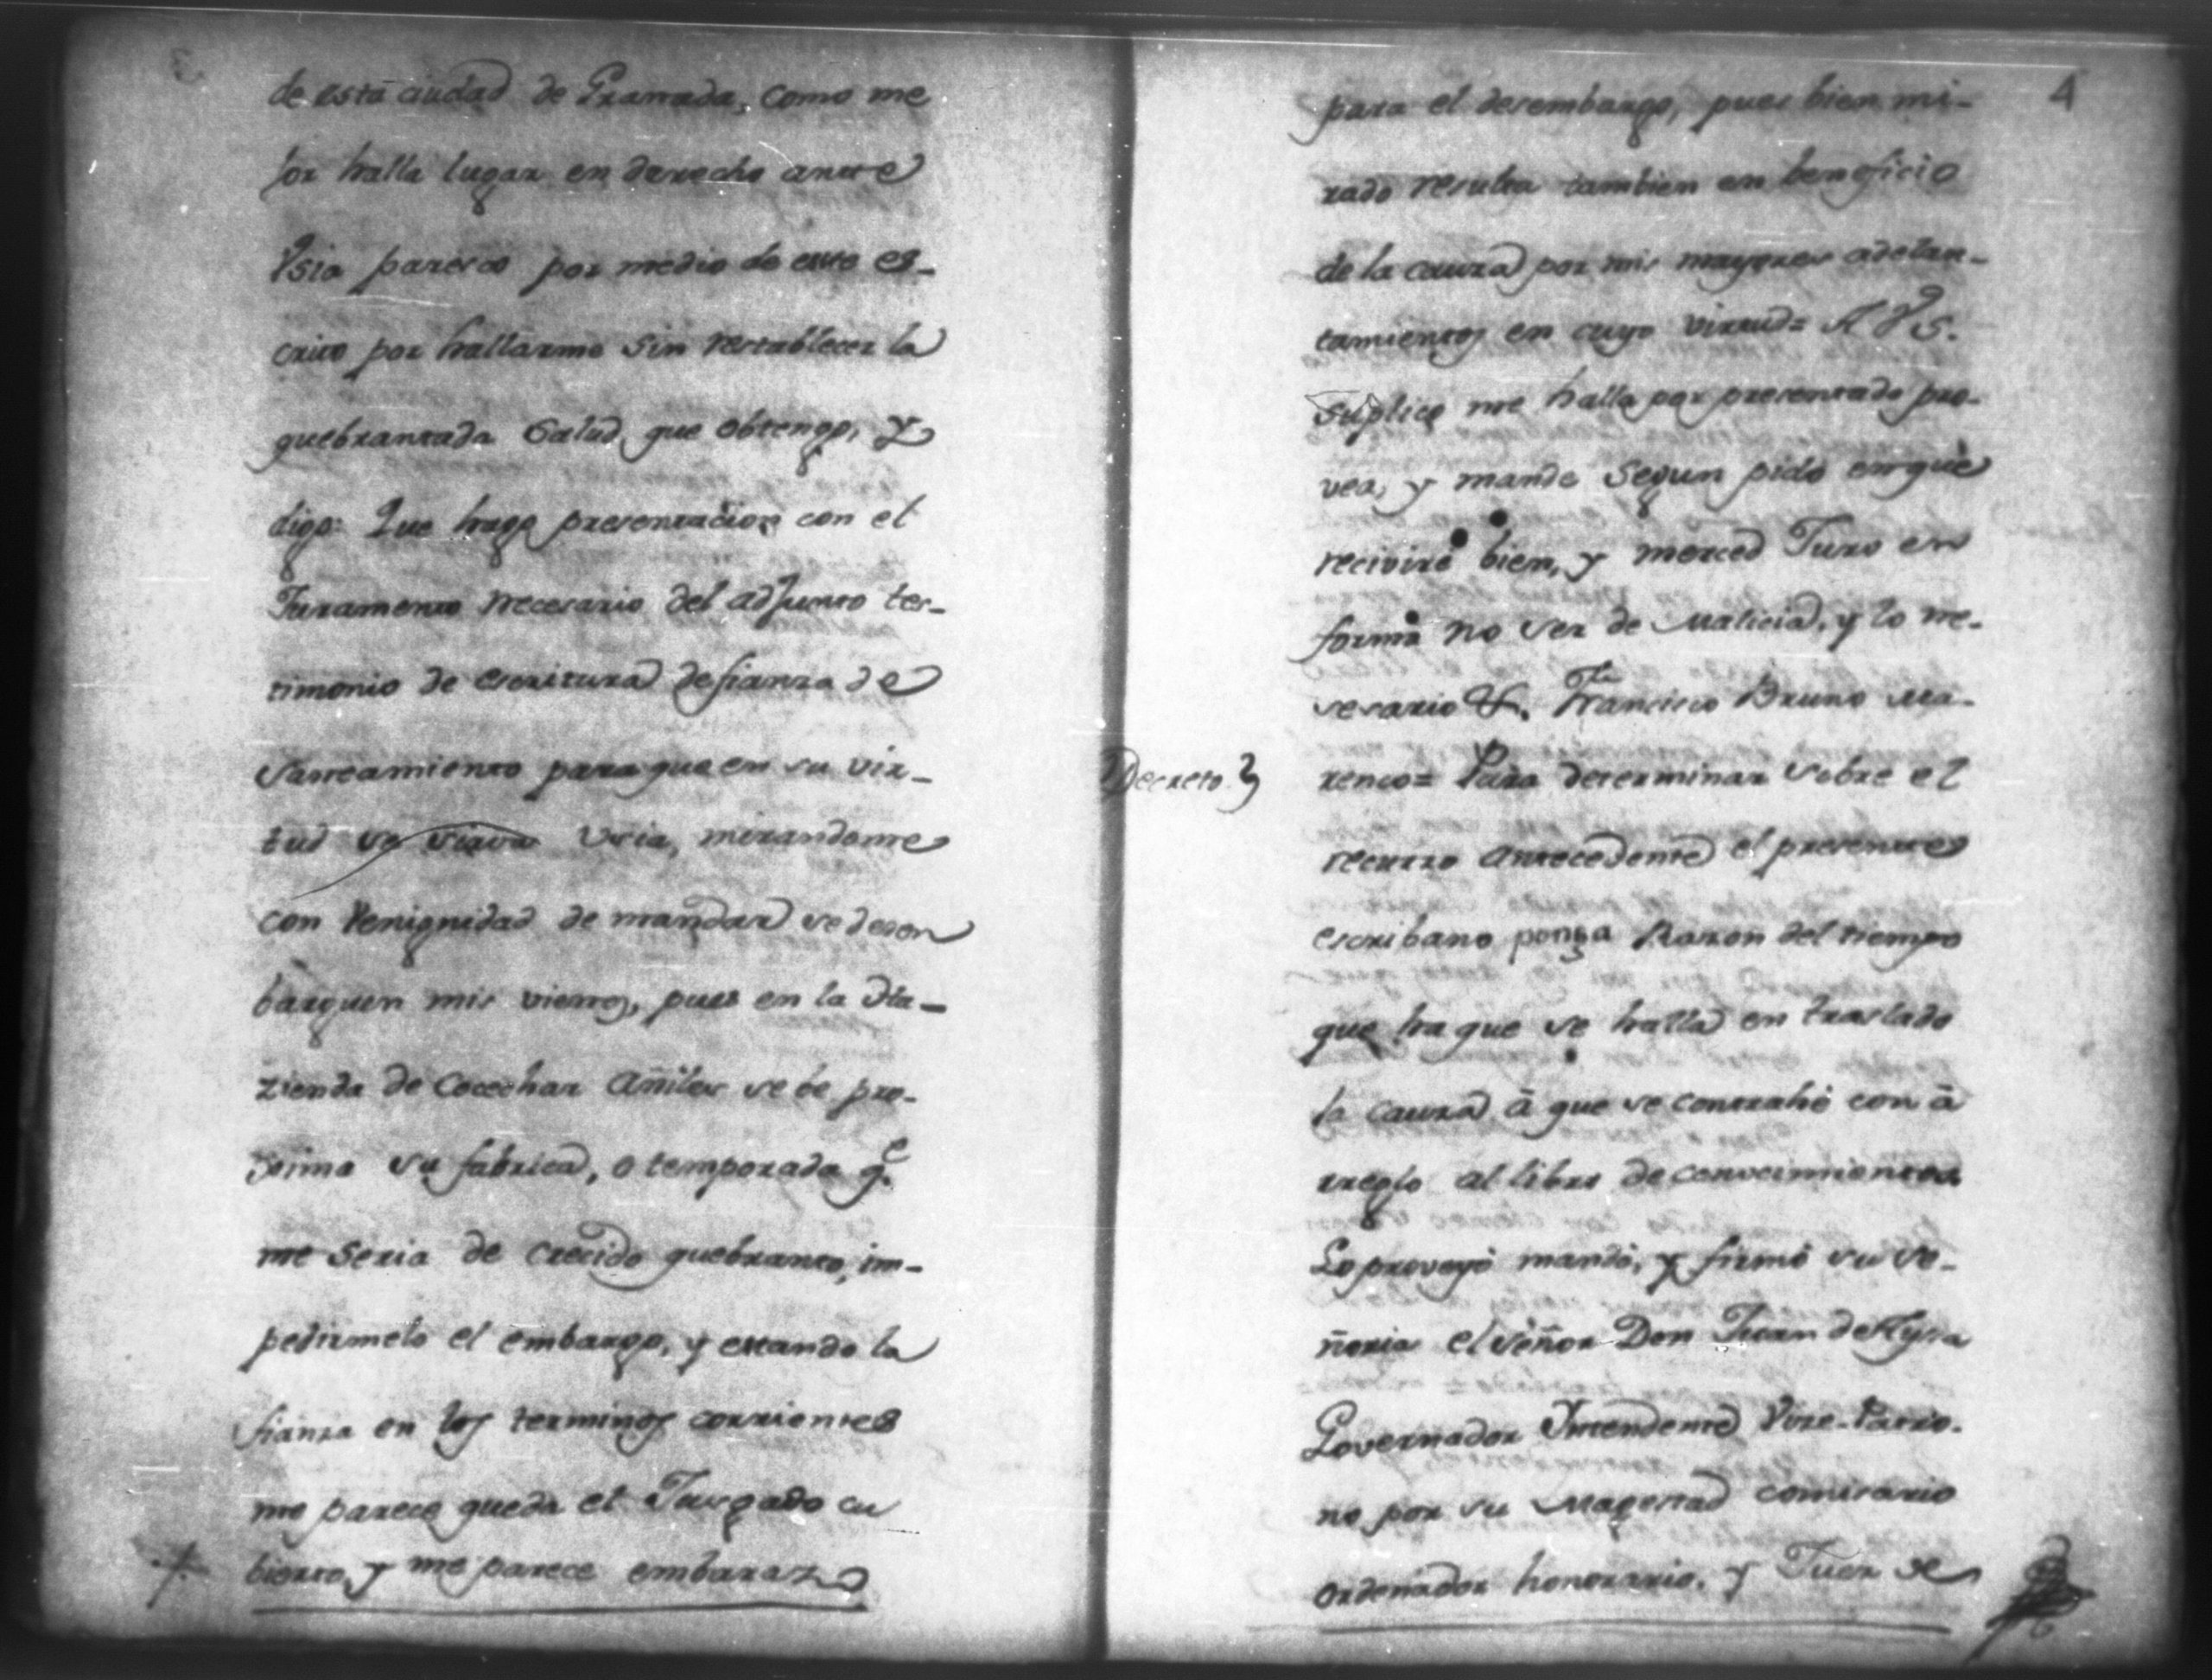 de esta ciudad de Granada, como me
jor halla lugar en derecho ante
Vsia paresco por medio de este es-
crito por hallarme sin restablecer la
quebrantada Salud que obtengo, y
digo: Que hago presentacion con el
Juramento necesario del adjunto tes-
timonio de escritura de fianza de
Saneamiento para que en su vir-
tud se sirva Vsia, mirandome
con venignidad de mandar se desen
barguen mis vienes, pues en la Ha-
zienda de Cocechar Añiles se be pro-
xima su fabrica, o temporada q.e
me seria de crecido quebranto, im-
pedirmelo el embargo, y estando la
fianza en los terminos corrientes
me parece queda el Jusgado cu
bierto, y me parece embarazo
4
para el desembargo, pues bien mi-
rado resulta tambien en beneficio
de la causa por mis mayores adelan-
tamientos en cuyo virtud= A V S.
Suplico me halla por presentado pro-
vea, y mande Segun pido en que
recivire bien, y merced Juro en
forma no ser de malicia, y lo ne-
sesario &. Francisco Bruno Ma-
Decreto
renco= Para determinar sobre el
recurso antecedente el presente
escribano ponga Razon del tiempo
que ha que se halla en traslado
la causa â que se contrahé con â
rreglo al libro de conocimientos
Lo proveyó mandó, y firmó su Se-
ñoria el Señor Don Juan de Aysa
Governador Intendente Vize-Patro-
no por su Magestad comisario
ordenador honorario, y Juez se